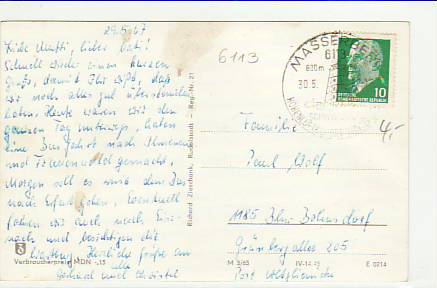 29.5.67
Liebe Mutti, lieber Vati!
Schnell wieder einen kurzen
Gruß, damit Ihr wißt, daß
wir noch alles gut überstanden
haben. Heute waren wir den
ganzen Tag unterwegs, haben
eine Busfahrt nach Ilmenau
und gemacht.
Morgen soll es mit dem Bus
nach Erfurt gehen, eventuell
fahren wir auch nach Eise-
nach und besichtigen die
Wartburg. Herzliche Grüße an
alle
Gerhard und Christel
Verbraucherpreis MDN -,15
Richard Zieschank, Rudolstadt - Reg.-Nr. 21
6113
MASSERBERG
6113
830m
30.5.
10
DEUTSCHE
DEMOKRATISCHE REPUBLIK
4,-
Familie
Paul Wolf
1185 Bln-Bohnsdorf
Grünbergallee 205
Post Altglienicke
M 3/65 IV-14-45 E 0214